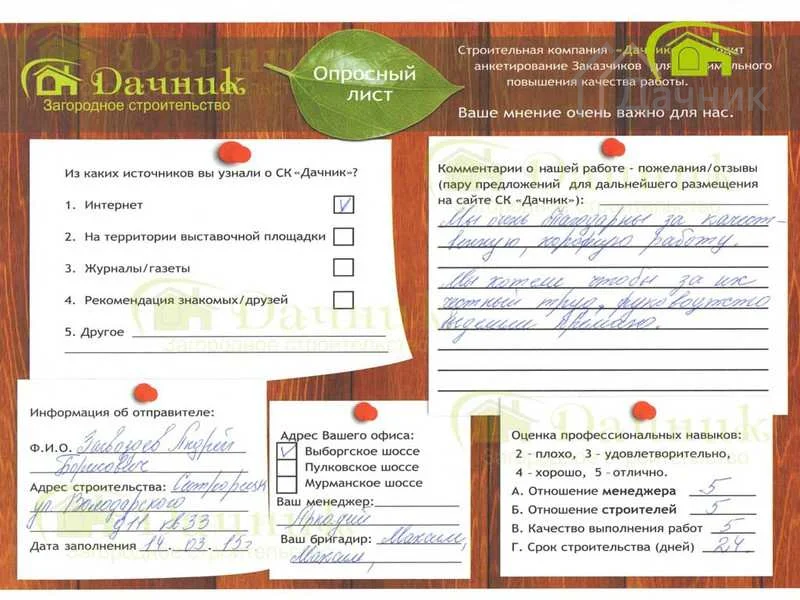 Дачник
Загородное строительство
Опросный
лист
Строительная компания «Дачник»
анкетирование Заказчиков для
повышения качества работы.
Ваше мнение очень важно для нас.
Дачник
Из каких источников вы узнали о СК «Дачник»?
1. Интернет V
2. На территории выставочной площадки
3. Журналы/газеты
4. Рекомендация знакомых/друзей
5. Другое
Комментарии о нашей работе - пожелания/отзывы
(пару предложений для дальнейшего размещения
на сайте СК «Дачник»):
Мы очень благодарны за качест-
венную, хорошую работу.
Мы хотели чтобы за их
честный труд, руководство
Дачник
Загородное строительство
Информация об отправителе:
Ф.И.О. Андрей
Борисович
Адрес строительства: Сестрорецк
ул. Володарского
д 11 кв 33
Дата заполнения 14. 03. 15г
Адрес Вашего офиса:
V Выборгское шоссе
Пулковское шоссе
Мурманское шоссе
Ваш менеджер:
Аркадий
Ваш бригадир: Максим,
Максим,
Оценка профессиональных навыков:
2 - плохо, 3 - удовлетворительно,
4 - хорошо, 5 - отлично.
А. Отношение менеджера 5
Б. Отношение строителей 5
В. Качество выполнения работ 5
Г. Срок строительства (дней) 24